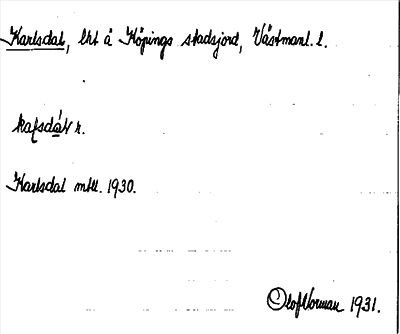 Karlsdal, lht å Köpings stadsjord, Västmanl. l.
Karlsdal mtll. 1930.
Olof Norman 1931.